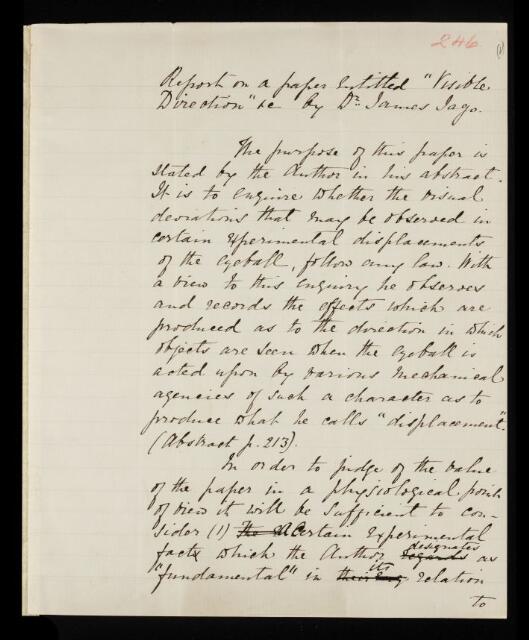 246 (1)
Report on a paper entitled "Visible
Direction" &c by Dr. James Jago.
The purpose of this paper is
stated by the Author in his abstract.
It is to enquire whether the visual
deviations that may be observed in
certain experimental displacements
of the eyeball, follow any law. With
a view to this enquiry he observes
and records the effects which are
produced as to the direction in which
objects are seen when the eyeball is
acted upon by various mechanical
agencies of such a character as to
produce what he calls "displacement".
(Abstract p. 213).
In order to judge of the value
of the paper in a physiological point
of view it will be sufficient to con-
sider (1) Certain experimental
designates
facts which the Author regards as
its
"fundamental" in relation
to